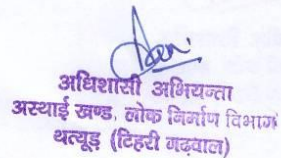 अधिशासी अभियन्ता
अस्थाई खण्ड, लोक निर्माण विभाग
थत्यूड़ (टिहरी गढ़वाल)